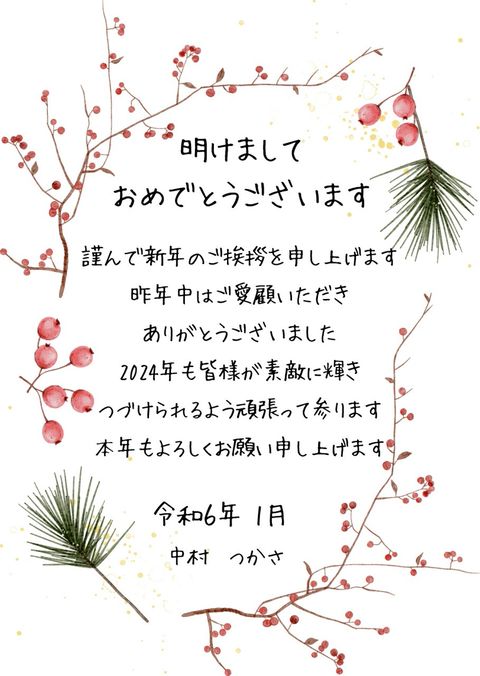 明けまして
おめでとうございます
謹んで新年のご挨拶を申し上げます
昨年中はご愛顧いただき
ありがとうございました
2024年も皆様が素敵に輝き
つづけられるよう頑張って参ります
本年もよろしくお願い申し上げます
令和6年 1月
中村 つかさ